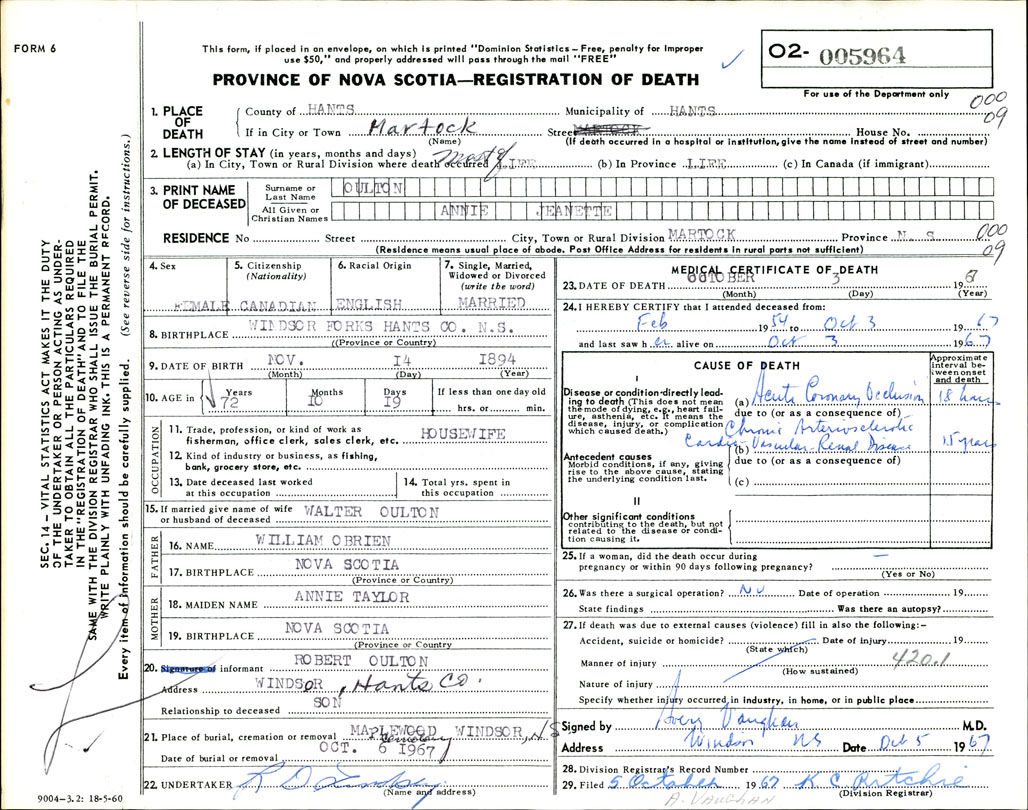 FORM 6
This form, if placed in an envelope, on which is printed "Dominion Statistics – Free, penalty for improper
use $50," and properly addressed will pass through the mail "FREE"
PROVINCE OF NOVA SCOTIA—REGISTRATION OF DEATH
O2- 005964
For use of the Department only
000
09
1. PLACE OF DEATH
County of HANTS Municipality of HANTS
If in City or Town Martock Street MARTOCK House No.
(Name) (If death occurred in a hospital or institution, give the name instead of street and number)
2. LENGTH OF STAY (in years, months and days)
(a) In City, Town or Rural Division where death occurred most of LIFE (b) In Province LIFE (c) In Canada (if immigrant)
3. PRINT NAME OF DECEASED
Surname or Last Name OULTON
All Given or Christian Names ANNIE JEANETTE
RESIDENCE No Street City, Town or Rural Division MARTOCK Province N. S.
000
09
(Residence means usual place of abode. Post Office Address for residents in rural parts not sufficient)
4. Sex FEMALE
5. Citizenship (Nationality) CANADIAN
6. Racial Origin ENGLISH
7. Single, Married, Widowed or Divorced (write the word) MARRIED
8. BIRTHPLACE WINDSOR FORKS HANTS CO. N.S.
((Province or Country)
9. DATE OF BIRTH NOV. 14 1894
(Month) (Day) (Year)
10. AGE in Years 72 Months 10 Days 19 If less than one day old
hrs. or min.
OCCUPATION
11. Trade, profession, or kind of work as
fisherman, office clerk, sales clerk, etc. HOUSEWIFE
12. Kind of industry or business, as fishing,
bank, grocery store, etc.
13. Date deceased last worked
at this occupation
14. Total yrs. spent in
this occupation
15. If married give name of wife
or husband of deceased WALTER OULTON
FATHER
16. NAME WILLIAM OBRIEN
17. BIRTHPLACE NOVA SCOTIA
(Province or Country)
MOTHER
18. MAIDEN NAME ANNIE TAYLOR
19. BIRTHPLACE NOVA SCOTIA
(Province or Country
20. Signature of informant ROBERT OULTON
Address WINDSOR, Hants Co.
Relationship to deceased SON
21. Place of burial, cremation or removal MAPLEWOOD Cemetery WINDSOR, NS
Date of burial or removal OCT. 6 1967
22. UNDERTAKER
(Name and address)
9004-3.2: 18-5-60
MEDICAL CERTIFICATE OF DEATH
23. DATE OF DEATH OCTOBER 3 19
(Month) (Day) (Year)
24. I HEREBY CERTIFY that I attended deceased from:
Feb 1954 to Oct 3 1967
and last saw her alive on Oct 3 1967
CAUSE OF DEATH
Approximate interval between onset and death
I
Disease or condition directly leading to death (This does not mean the mode of dying, e.g., heart failure, asthenia, etc. It means the disease, injury, or complication which caused death.)
(a) Acute Coronary Occlusion 18 hours
due to (or as a consequence of)
Chronic Arteriosclerotic
(b) Cardio-Vascular-Renal Disease 15 years
due to (or as a consequence of)
Antecedent causes
Morbid conditions, if any, giving rise to the above cause, stating the underlying condition last.
(c)
II
Other significant conditions
contributing to the death, but not related to the disease or condition causing it.
25. If a woman, did the death occur during
pregnancy or within 90 days following pregnancy? —
(Yes or No)
26. Was there a surgical operation? No Date of operation 19
State findings Was there an autopsy?
27. If death was due to external causes (violence) fill in also the following:–
Accident, suicide or homicide? Date of injury 19
(State which)
Manner of injury 420.1
(How sustained)
Nature of injury
Specify whether injury occurred in industry, in home, or in public place
Signed by Avery Vaughan M.D.
Address Windsor NS Date Oct 5 1967
28. Division Registrar's Record Number
29. Filed 5 October 1967 K C Ritchie
(Division Registrar)
A. VAUGHAN
SEC. 14 – VITAL STATISTICS ACT MAKES IT THE DUTY
OF THE UNDERTAKER OR PERSON ACTING AS UNDER-
TAKER TO OBTAIN ALL THE PARTICULARS REQUIRED
IN THE "REGISTRATION OF DEATH" AND TO FILE THE
SAME WITH THE DIVISION REGISTRAR WHO SHALL ISSUE THE BURIAL PERMIT.
WRITE PLAINLY WITH UNFADING INK. THIS IS A PERMANENT RECORD.
Every item of information should be carefully supplied. (See reverse side for instructions.)